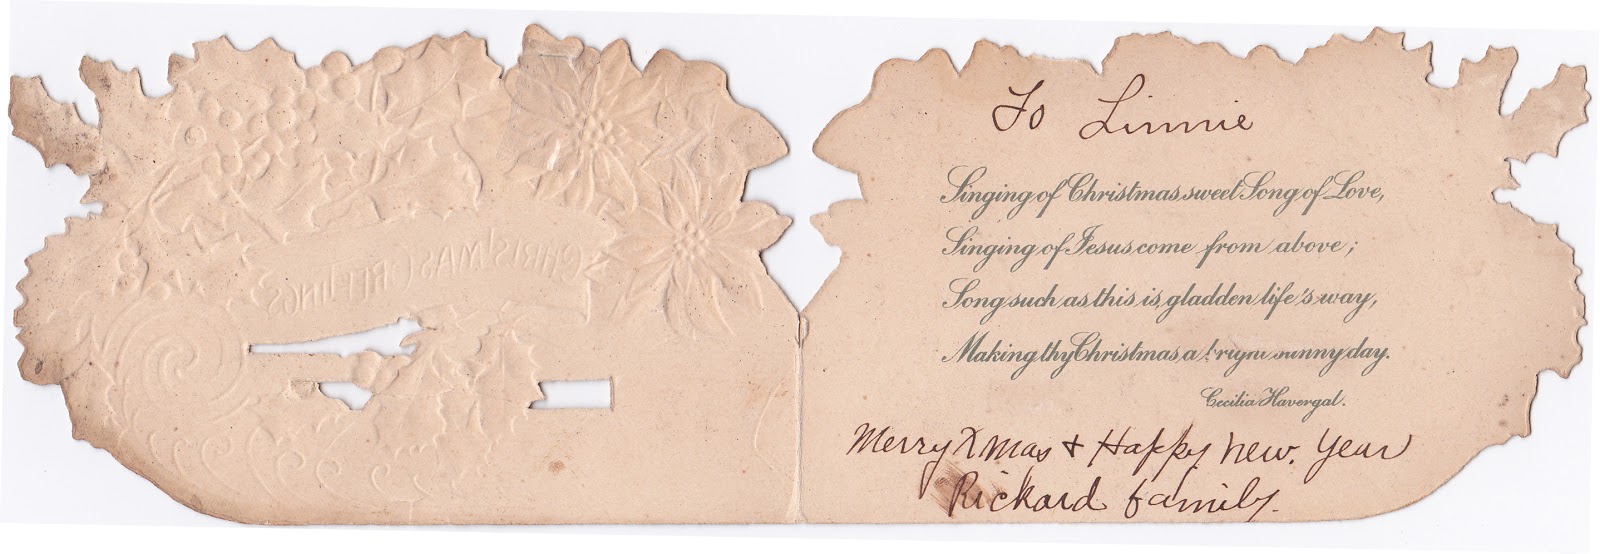 CHRISTMAS GREETINGS
To Linnie
Singing of Christmas sweet Song of Love,
Singing of Jesus come from above;
Song such as this is, gladden life's way,
Making thy Christmas a bright sunny day.
Cecilia Havergal.
Merry Xmas + Happy New. Year
Rickard family.